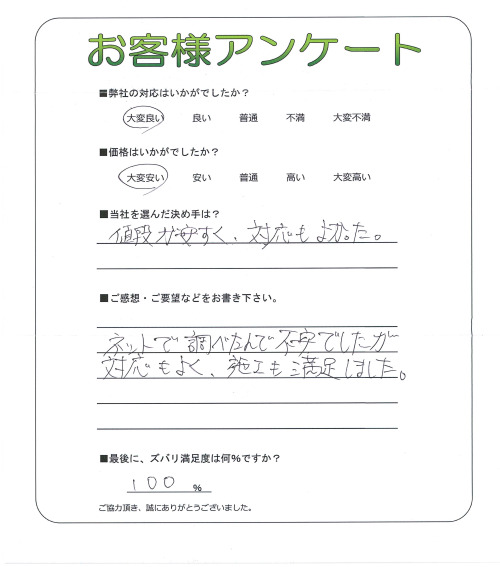 お客様アンケート
■弊社の対応はいかがでしたか？
大変良い 良い 普通 不満 大変不満
■価格はいかがでしたか？
大変安い 安い 普通 高い 大変高い
■当社を選んだ決め手は？
値段が安すく、対応もよかった。
■ご感想・ご要望などをお書き下さい。
ネットで調べたんで不安でしたが
対応もよく、施工も満足しました。
■最後に、ズバリ満足度は何％ですか？
100 ％
ご協力頂き、誠にありがとうございました。